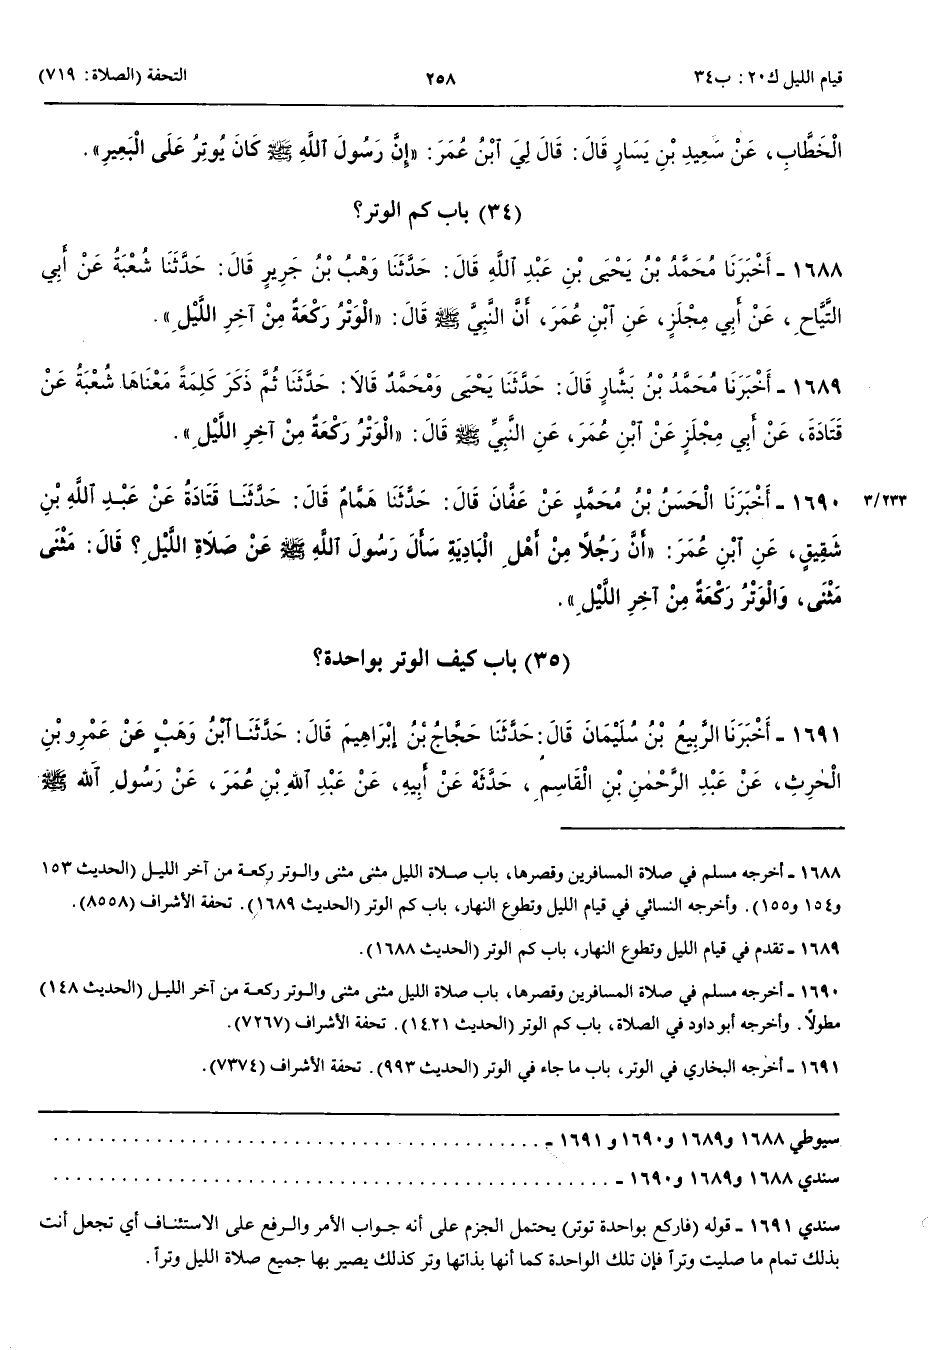 قيام الليل ك٢٠: ب٣٤ ٢٥٨ التحفة (الصلاة: ٧١٩)
الْخَطَّابِ، عَنْ سَعِيدِ بْنِ يَسَارٍ قَالَ: قَالَ لِيَ ٱبْنُ عُمَرَ: «إِنَّ رَسُولَ ٱللَّهِ ﷺ كَانَ يُوتِرُ عَلَى الْبَعِيرِ».
(٣٤) باب كم الوتر؟
١٦٨٨ - أَخْبَرَنَا مُحَمَّدُ بْنُ يَحْيَى بْنِ عَبْدِ ٱللَّهِ قَالَ: حَدَّثَنَا وَهْبُ بْنُ جَرِيرٍ قَالَ: حَدَّثَنَا شُعْبَةُ عَنْ أَبِي
التَّيَّاحِ، عَنْ أَبِي مِجْلَزٍ، عَنِ ٱبْنِ عُمَرَ، أَنَّ النَّبِيَّ ﷺ قَالَ: «الْوَتْرُ رَكْعَةٌ مِنْ آخِرِ اللَّيْلِ».
١٦٨٩ - أَخْبَرَنَا مُحَمَّدُ بْنُ بَشَّارٍ قَالَ: حَدَّثَنَا يَحْيَى وَمُحَمَّدٌ قَالَا: حَدَّثَنَا ثُمَّ ذَكَرَ كَلِمَةً مَعْنَاهَا شُعْبَةُ عَنْ
قَتَادَةَ، عَنْ أَبِي مِجْلَزٍ عَنْ ٱبْنِ عُمَرَ، عَنِ النَّبِيِّ ﷺ قَالَ: «الْوَتْرُ رَكْعَةٌ مِنْ آخِرِ اللَّيْلِ».
٣/٢٣٣ ١٦٩٠ - أَخْبَرَنَا الْحَسَنُ بْنُ مُحَمَّدٍ عَنْ عَفَّانَ قَالَ: حَدَّثَنَا هَمَّامٌ قَالَ: حَدَّثَنَا قَتَادَةُ عَنْ عَبْدِ ٱللَّهِ بْنِ
شَقِيقٍ، عَنِ ٱبْنِ عُمَرَ: «أَنَّ رَجُلًا مِنْ أَهْلِ الْبَادِيَةِ سَأَلَ رَسُولَ ٱللَّهِ ﷺ عَنْ صَلَاةِ اللَّيْلِ؟ قَالَ: مَثْنَى
مَثْنَى، وَالْوَتْرُ رَكْعَةٌ مِنْ آخِرِ اللَّيْلِ».
(٣٥) باب كيف الوتر بواحدة؟
١٦٩١ - أَخْبَرَنَا الرَّبِيعُ بْنُ سُلَيْمَانَ قَالَ: حَدَّثَنَا حَجَّاجُ بْنُ إِبْرَاهِيمَ قَالَ: حَدَّثَنَا ٱبْنُ وَهْبٍ عَنْ عَمْرِو بْنِ
الْحٰرِثِ، عَنْ عَبْدِ الرَّحْمٰنِ بْنِ الْقَاسِمِ، حَدَّثَهُ عَنْ أَبِيهِ، عَنْ عَبْدِ اللهِ بْنِ عُمَرَ، عَنْ رَسُولِ اللهِ ﷺ
١٦٨٨ - أخرجه مسلم في صلاة المسافرين وقصرها، باب صلاة الليل مثنى مثنى والوتر ركعة من آخر الليل (الحديث ١٥٣
و١٥٤ و١٥٥). وأخرجه النسائي في قيام الليل وتطوع النهار، باب كم الوتر (الحديث ١٦٨٩). تحفة الأشراف (٨٥٥٨).
١٦٨٩ - تقدم في قيام الليل وتطوع النهار، باب كم الوتر (الحديث ١٦٨٨).
١٦٩٠ - أخرجه مسلم في صلاة المسافرين وقصرها، باب صلاة الليل مثنى مثنى والوتر ركعة من آخر الليل (الحديث ١٤٨)
مطولًا. وأخرجه أبو داود في الصلاة، باب كم الوتر (الحديث ١٤٢١). تحفة الأشراف (٧٢٦٧).
١٦٩١ - أخرجه البخاري في الوتر، باب ما جاء في الوتر (الحديث ٩٩٣). تحفة الأشراف (٧٣٧٤).
سيوطي ١٦٨٨ و١٦٨٩ و١٦٩٠ و١٦٩١ - ........................................
سندي ١٦٨٨ و١٦٨٩ و١٦٩٠ - ................................................
سندي ١٦٩١ - قوله (فاركع بواحدة توتر) يحتمل الجزم على أنه جواب الأمر والرفع على الاستئناف أي تجعل أنت
بذلك تمام ما صليت وترآ فإن تلك الواحدة كما أنها بذاتها وتر كذلك يصير بها جميع صلاة الليل وترآ.